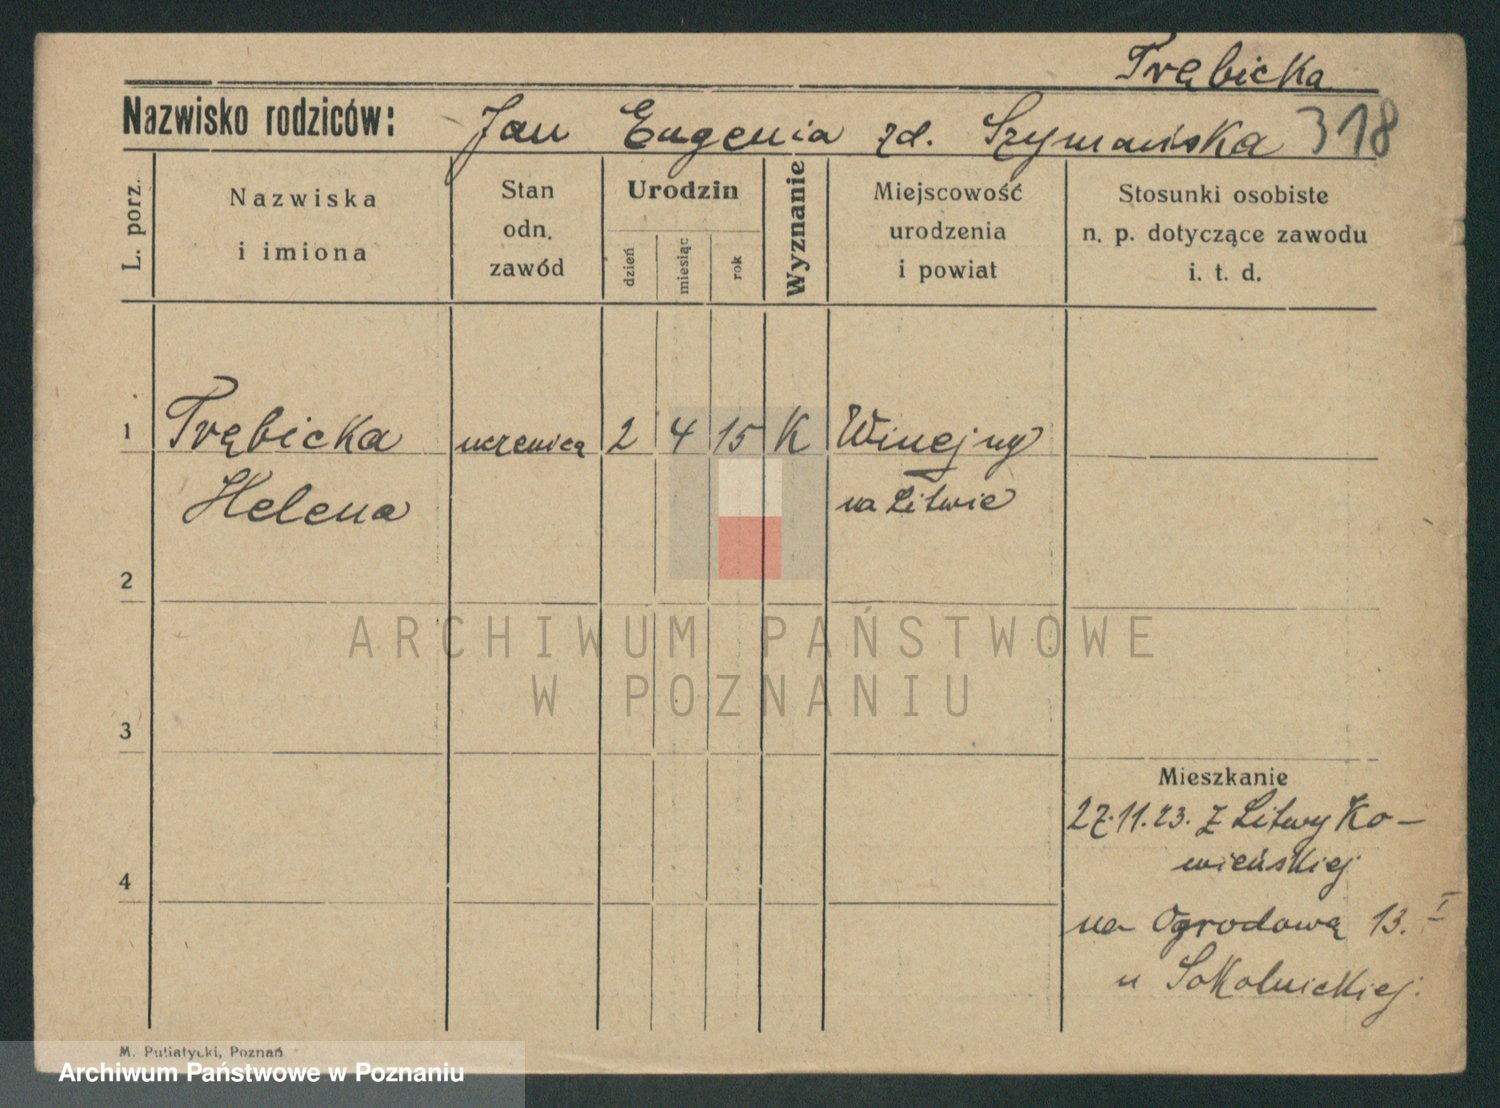 Trąbicka
Nazwisko rodziców: Jan Eugenia zd. Szymańska 318
L. porz.
Nazwiska
i imiona
Stan
odn.
zawód
Urodzin
dzień
miesiąc
rok
Wyznanie
Miejscowość
urodzenia
i powiat
Stosunki osobiste
n. p. dotyczące zawodu
i. t. d.
1 Trąbicka uczenica 2 4 15 K
Helena na Litwie
2
ARCHIWUM PAŃSTWOWE
W POZNANIU
3
Mieszkanie
27.11.23. z Litwy Ko-
wieńskiej
4
na Ogrodową 13. I
u Sokolnickiej.
M. Putiatycki, Poznań
Archiwum Państwowe w Poznaniu